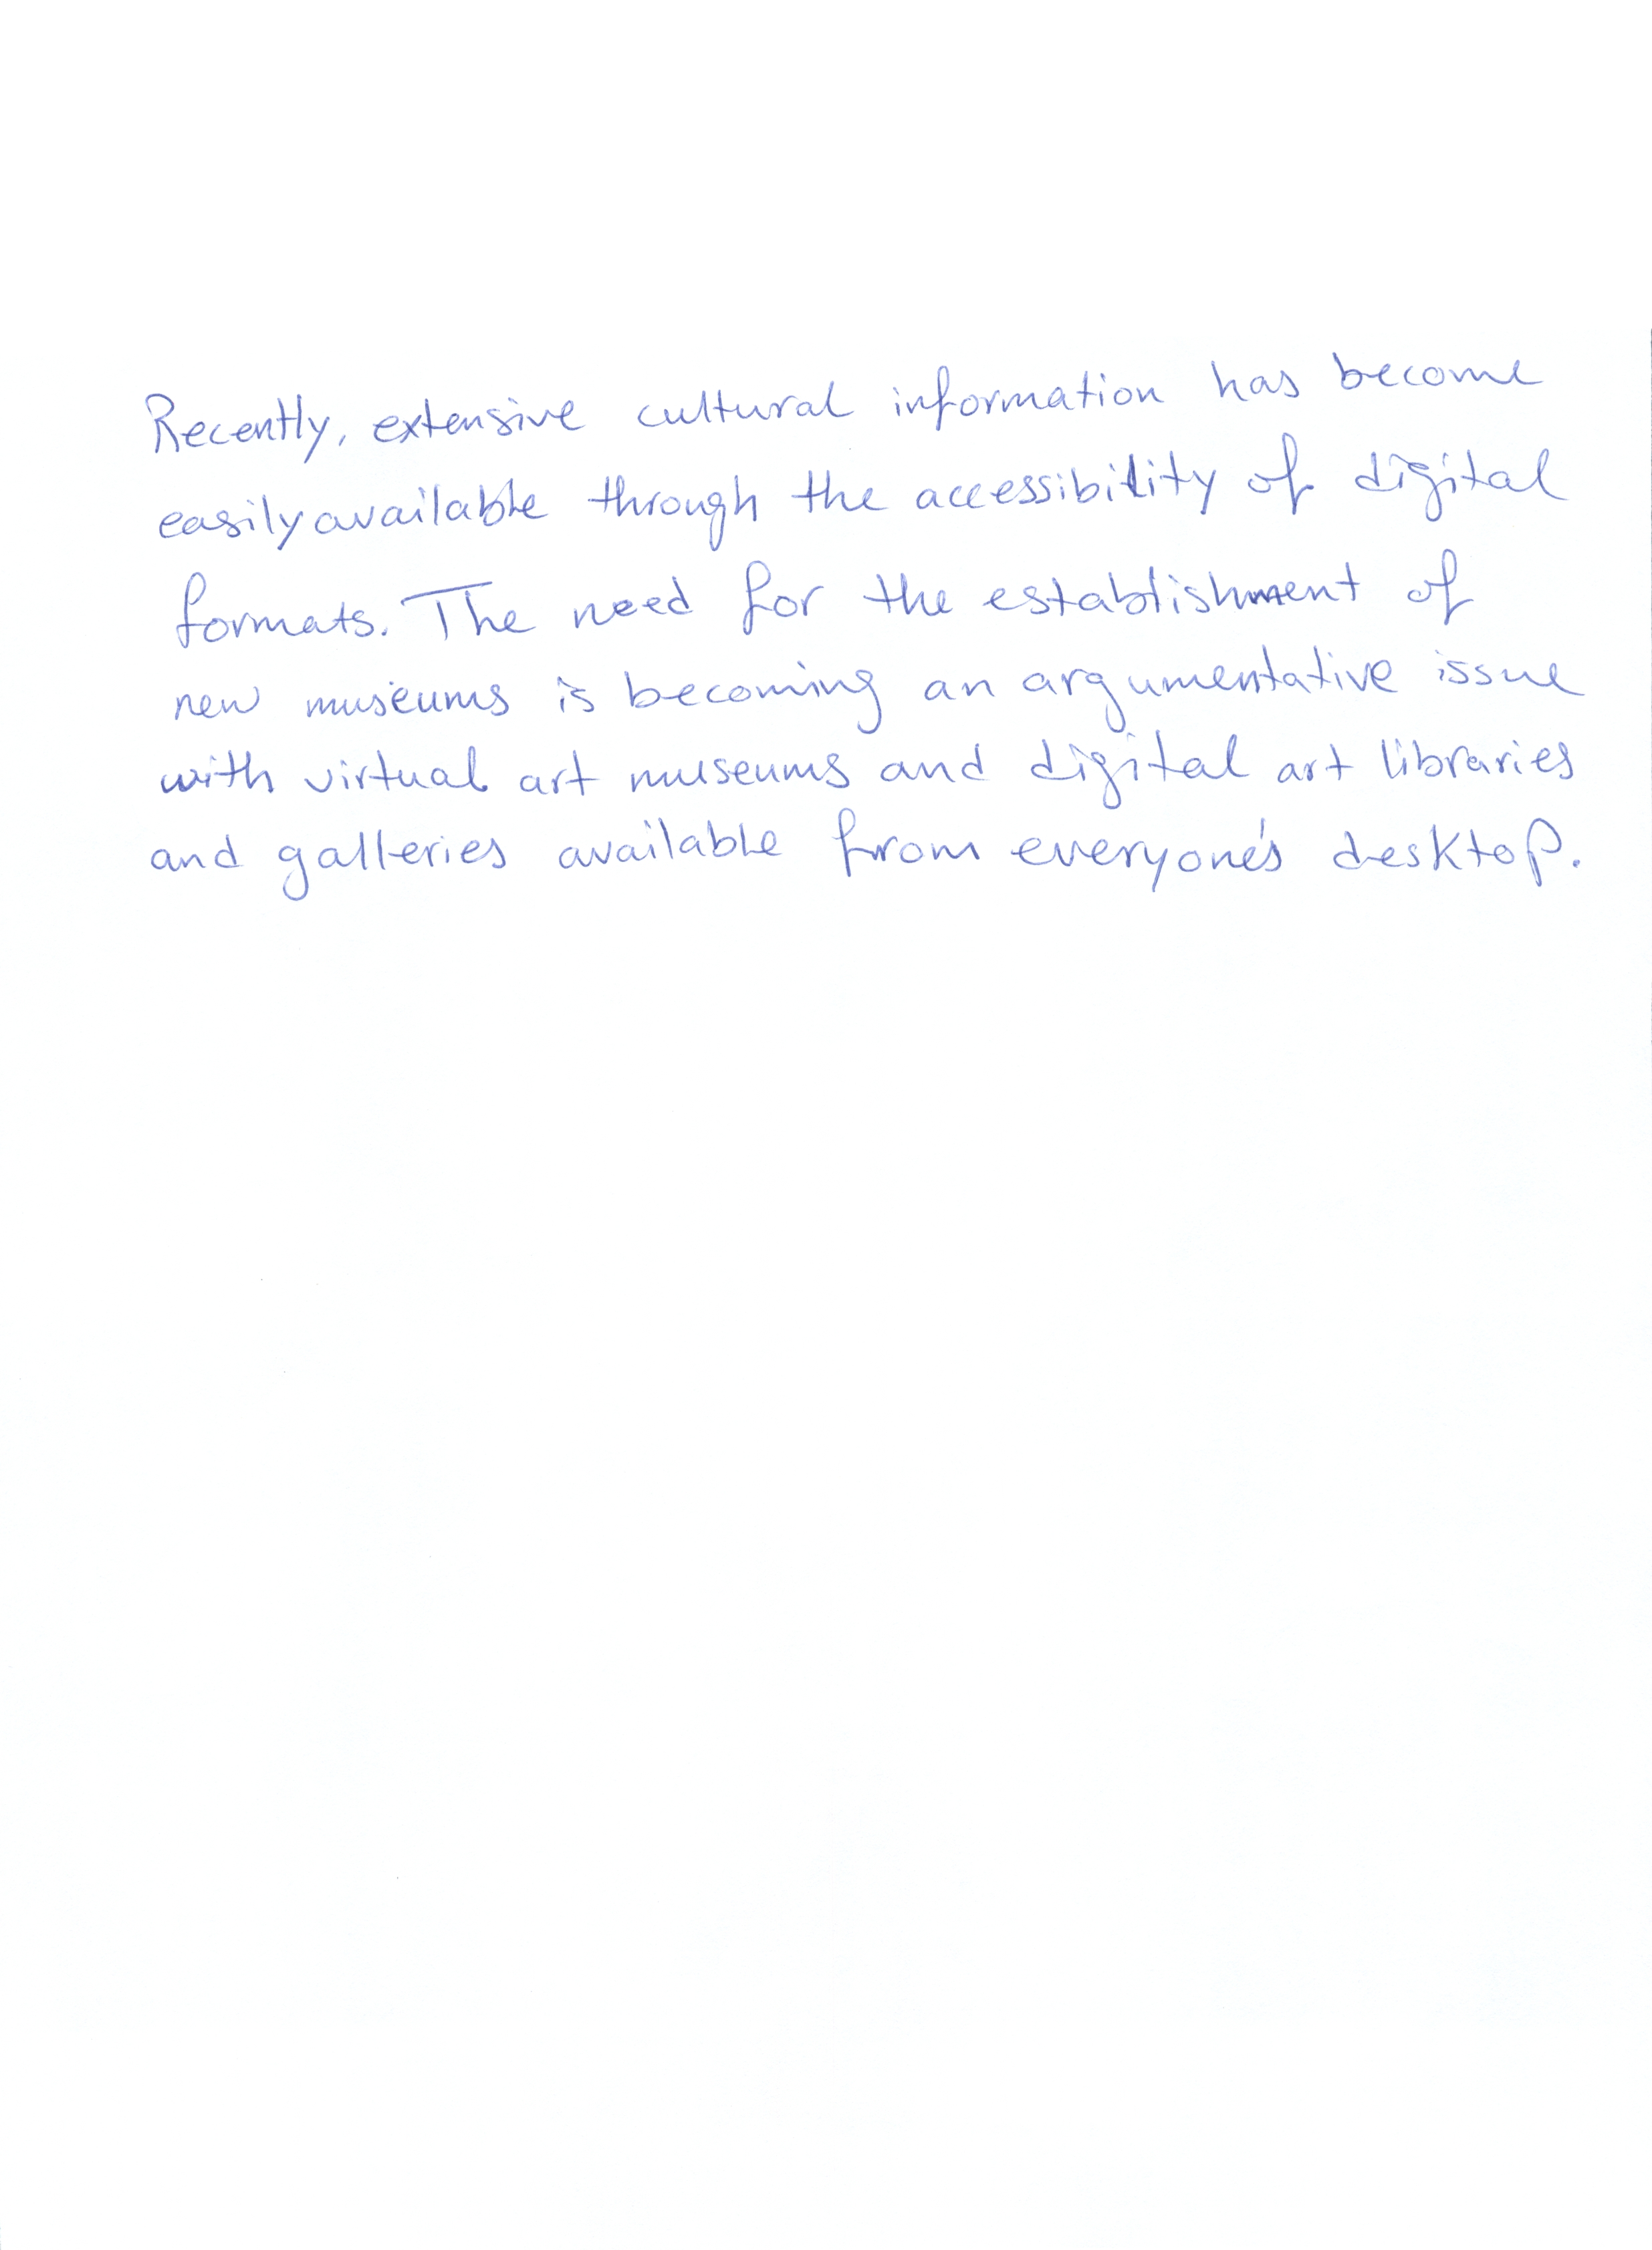 Recently, extensive cultural information has become
easily available through the accessibility of digital
formats. The need for the establishment of
new museums is becoming an argumentative issue
with virtual art museums and digital art libraries
and galleries available from everyone's desktop.